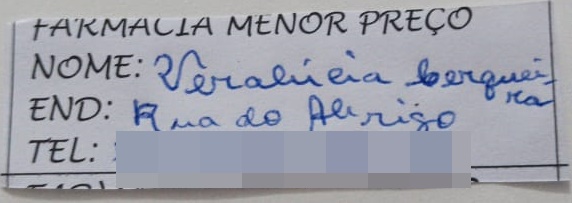 FARMACIA MENOR PREÇO
NOME: Veralúcia Cerquei-
ra
END: Rua do Abrigo
TEL: